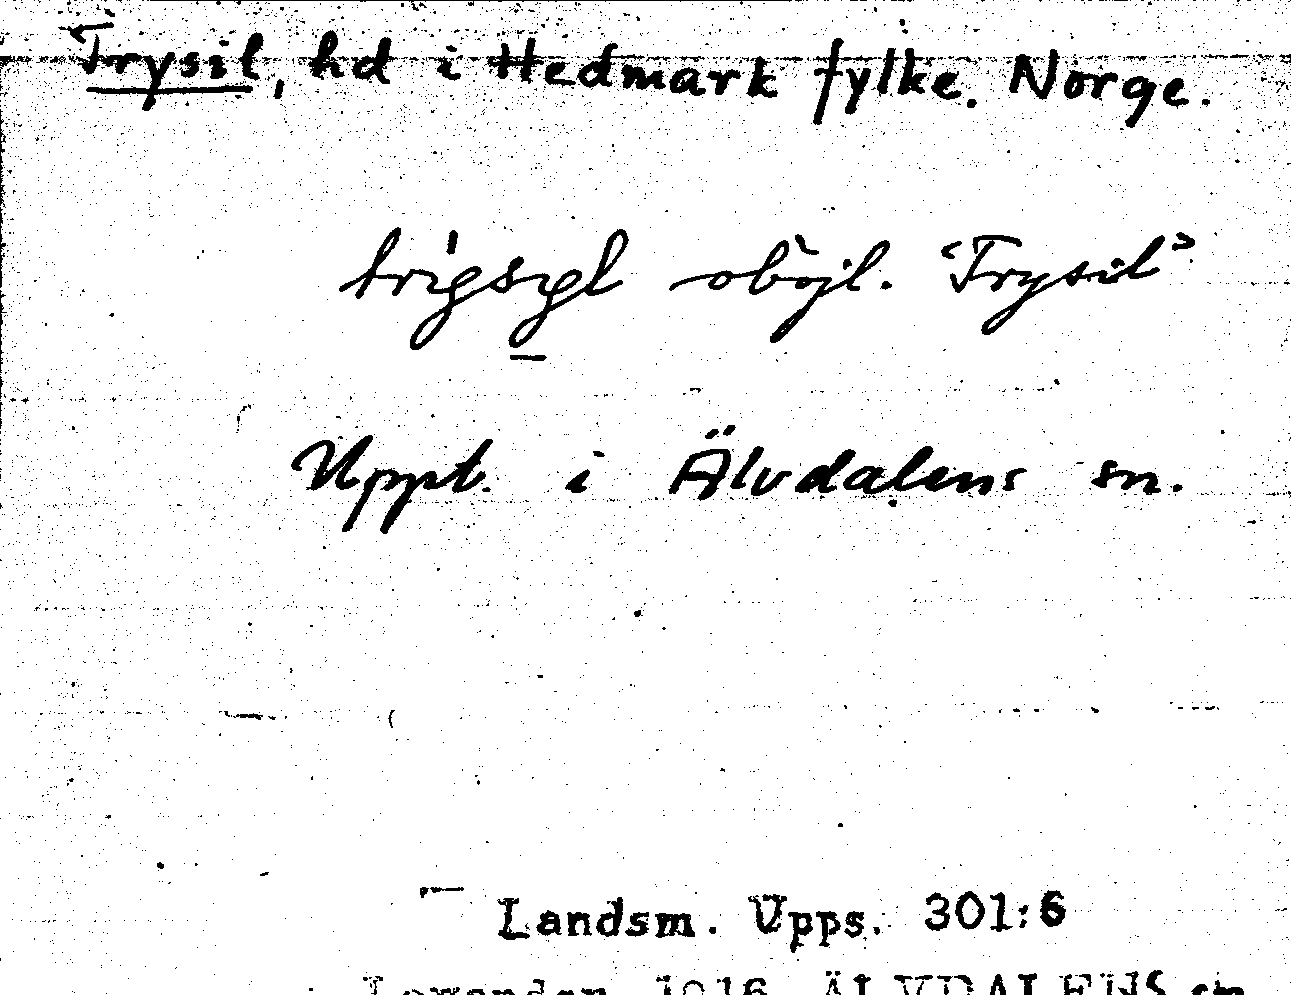 Trysil, hd i Hedmark fylke. Norge.
oböjl. "Trysil"
Uppt. i Älvdalens sn.
Landsm. Upps. 301:6
1916 ÄLVDALENS sn